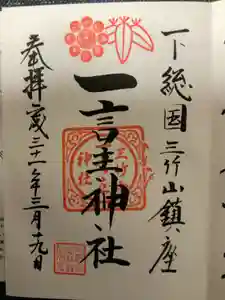 下総国三竹山鎮座
一言主神社
奉拝
三十一年三月十九日